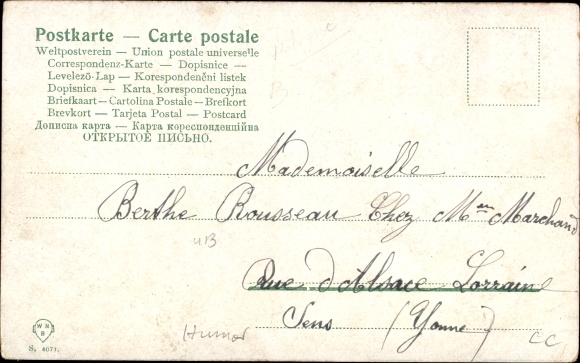 Postkarte — Carte postale
Weltpostverein — Union postale universelle
Correspondenz-Karte — Dopisnice —
Levelező-Lap — Korespondenčni listek
Dopisnica — Karta korespondencyjna
Briefkaart — Cartolina Postale — Brefkort
Brevkort — Tarjeta Postal — Postcard
Дописна карта — Карта кореспонденційна
ОТКРЫТОЕ ПИСЬМО.
Mademoiselle
Berthe Rousseau Chez Men Marchand
Rue d'Alsace Lorraine
Sens (Yonne)
uB
Humor
CC
W N
B
S. 4071.